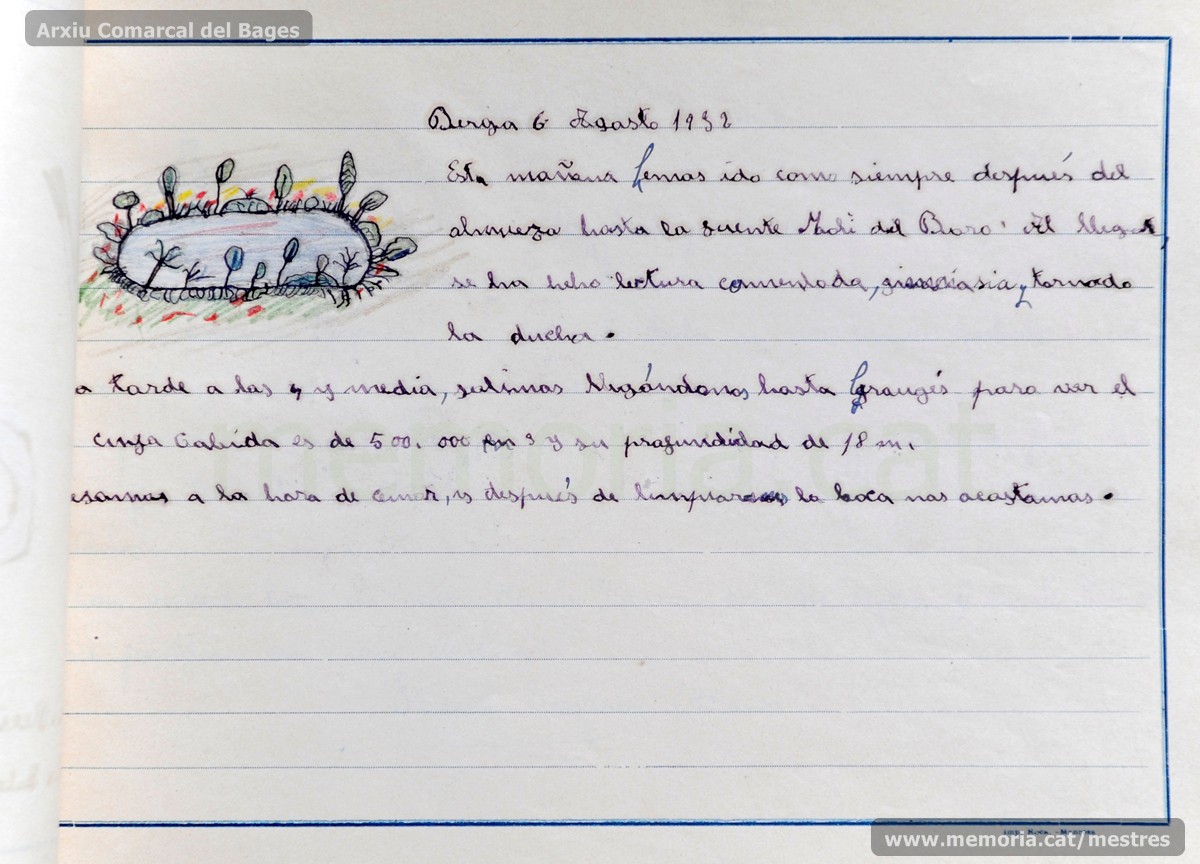 Arxiu Comarcal del Bages
Berga 6 Agosto 1932
Esta mañana hemos ido como siempre después del
hasta la fuente Molí del Baró. Al llegar
se ha hecho lectura comentada, gimnásia, y tomado
la ducha.
a tarde a las 4 y media, salimos llegándonos hasta Graugés para ver el
cuya Cabida es de 500.000 m3 y su profundidad de 18 m.
a la hora de cenar, y después de limpiarnos la boca nos acostamos.
www.memoria.cat/mestres